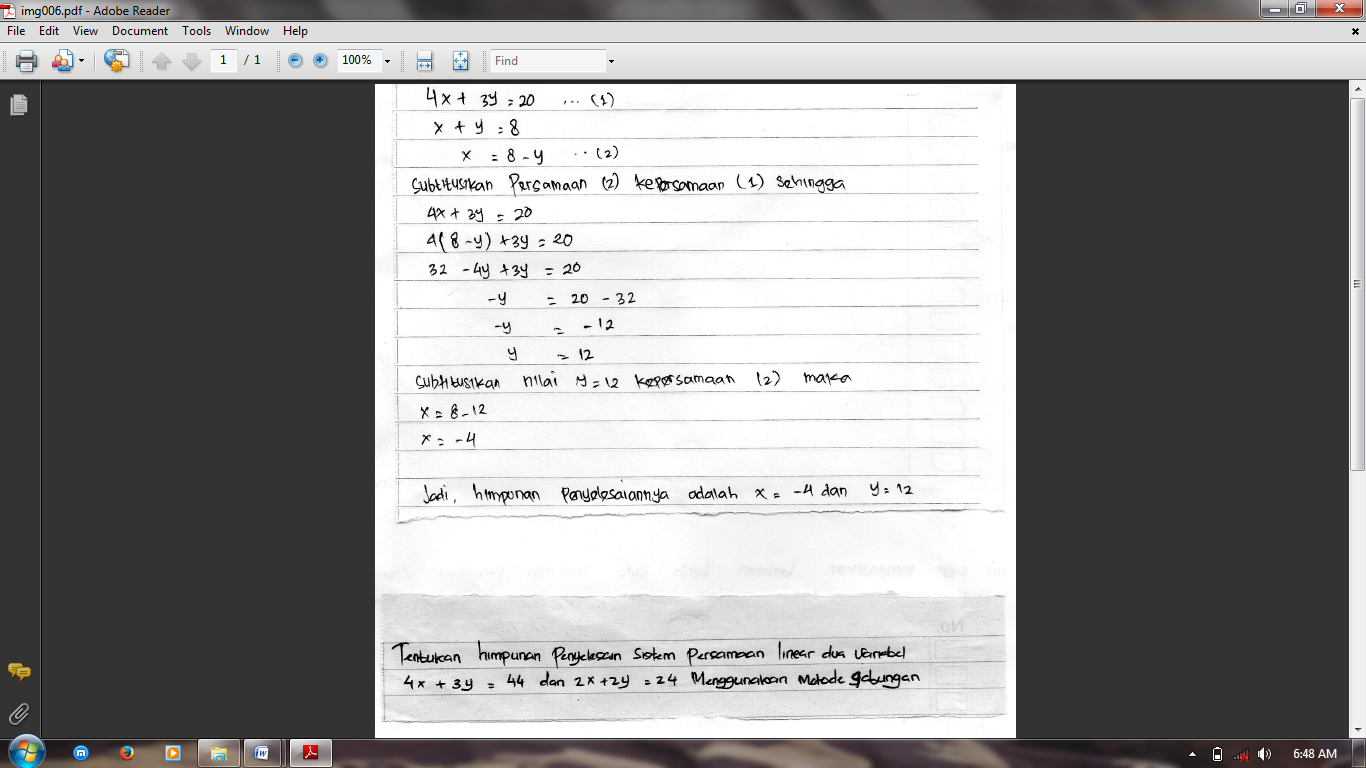 img006.pdf - Adobe Reader
File Edit View Document Tools Window Help
1 / 1 100% Find
4x + 3y = 20 ... (1)
x + y = 8
x = 8 - y .. (2)
Subtitusikan Persamaan (2) kepersamaan (1) sehingga
4x + 3y = 20
4(8 - y) + 3y = 20
32 - 4y + 3y = 20
-y = 20 - 32
-y = -12
y = 12
Subtitusikan nilai y = 12 kepersamaan (2) maka
x = 8 - 12
x = -4
Jadi, himpunan penyelesaiannya adalah x = -4 dan y = 12
No.
Tentukan himpunan Penyelesain Sistem Persamaan linear dua variabel
4x + 3y = 44 dan 2x + 2y = 24 Menggunakan Metode gabungan
6:48 AM